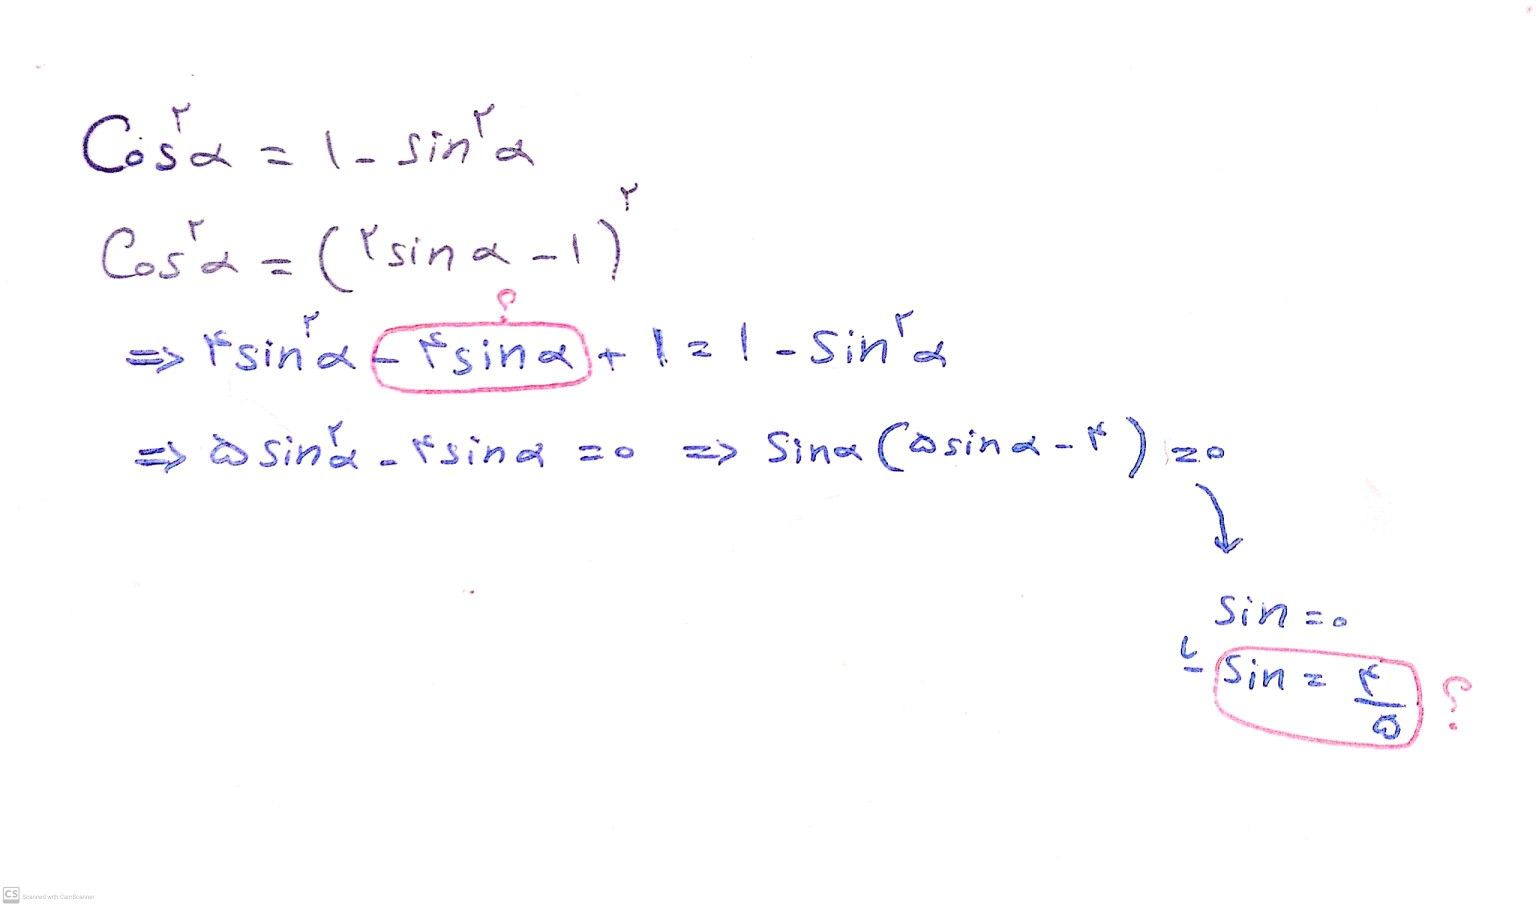 Cos²α = ۱ - sin²α
Cos²α = (۲sinα - ۱)²
؟
=> ۴sin²α - ۴sinα + ۱ = ۱ - sin²α
=> ۵sin²α - ۴sinα = ۰ => sinα(۵sinα - ۴) = ۰
sin = ۰
یا sin = ۴/۵ ؟
CS Scanned with CamScanner